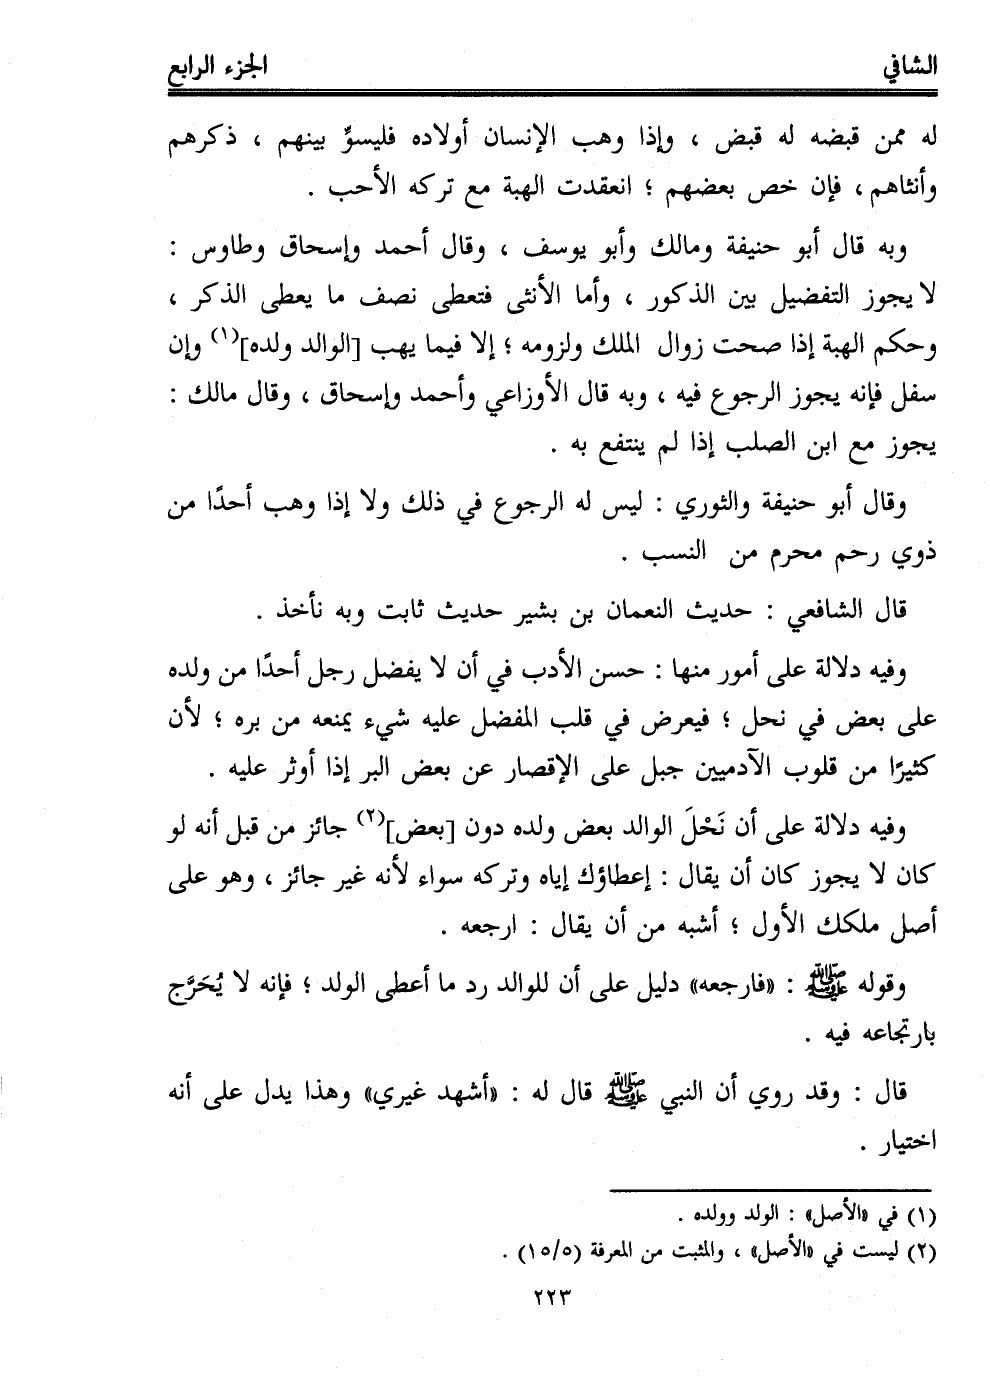 الشافي الجزء الرابع
له ممن قبضه له قبض ، وإذا وهب الإنسان أولاده فليسوِّ بينهم ، ذكرهم
وأنثاهم ، فإن خص بعضهم ؛ انعقدت الهبة مع تركه الأحب .
وبه قال أبو حنيفة ومالك وأبو يوسف ، وقال أحمد وإسحاق وطاوس :
لا يجوز التفضيل بين الذكور ، وأما الأنثى فتعطى نصف ما يعطى الذكر ،
وحكم الهبة إذا صحت زوال الملك ولزومه ؛ إلا فيما يهب [الوالد ولده](١) وإن
سفل فإنه يجوز الرجوع فيه ، وبه قال الأوزاعي وأحمد وإسحاق ، وقال مالك :
يجوز مع ابن الصلب إذا لم ينتفع به .
وقال أبو حنيفة والثوري : ليس له الرجوع في ذلك ولا إذا وهب أحدًا من
ذوي رحم محرم من النسب .
قال الشافعي : حديث النعمان بن بشير حديث ثابت وبه نأخذ .
وفيه دلالة على أمور منها : حسن الأدب في أن لا يفضل رجل أحدًا من ولده
على بعض في نحل ؛ فيعرض في قلب المفضل عليه شيء يمنعه من بره ؛ لأن
كثيرًا من قلوب الآدميين جبل على الإقصار عن بعض البر إذا أوثر عليه .
وفيه دلالة على أن نَحْلَ الوالد بعض ولده دون [بعض](٢) جائز من قبل أنه لو
كان لا يجوز كان أن يقال : إعطاؤك إياه وتركه سواء لأنه غير جائز ، وهو على
أصل ملكك الأول ؛ أشبه من أن يقال : ارجعه .
وقوله ﷺ : «فارجعه» دليل على أن للوالد رد ما أعطى الولد ؛ فإنه لا يُحَرَّج
بارتجاعه فيه .
قال : وقد روي أن النبي ﷺ قال له : «أشهد غيري» وهذا يدل على أنه
اختيار .
(١) في «الأصل» : الولد وولده .
(٢) ليست في «الأصل» ، والمثبت من المعرفة (١٥/٥) .
٢٢٣